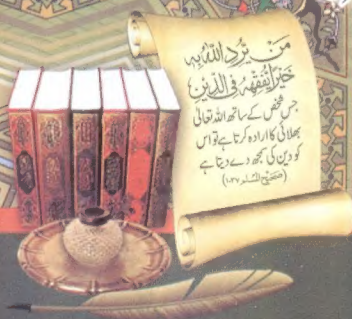 مَنْ يُرِدِ اللّٰهُ بِهِ
خَيْرًا يُفَقِّهْهُ فِي الدِّينِ
جس شخص کے ساتھ اللہ تعالیٰ
بھلائی کا ارادہ کرتا ہے تو اس
کو دین کی سمجھ دے دیتا ہے
(صحیح المسلم ١٠٣٧)